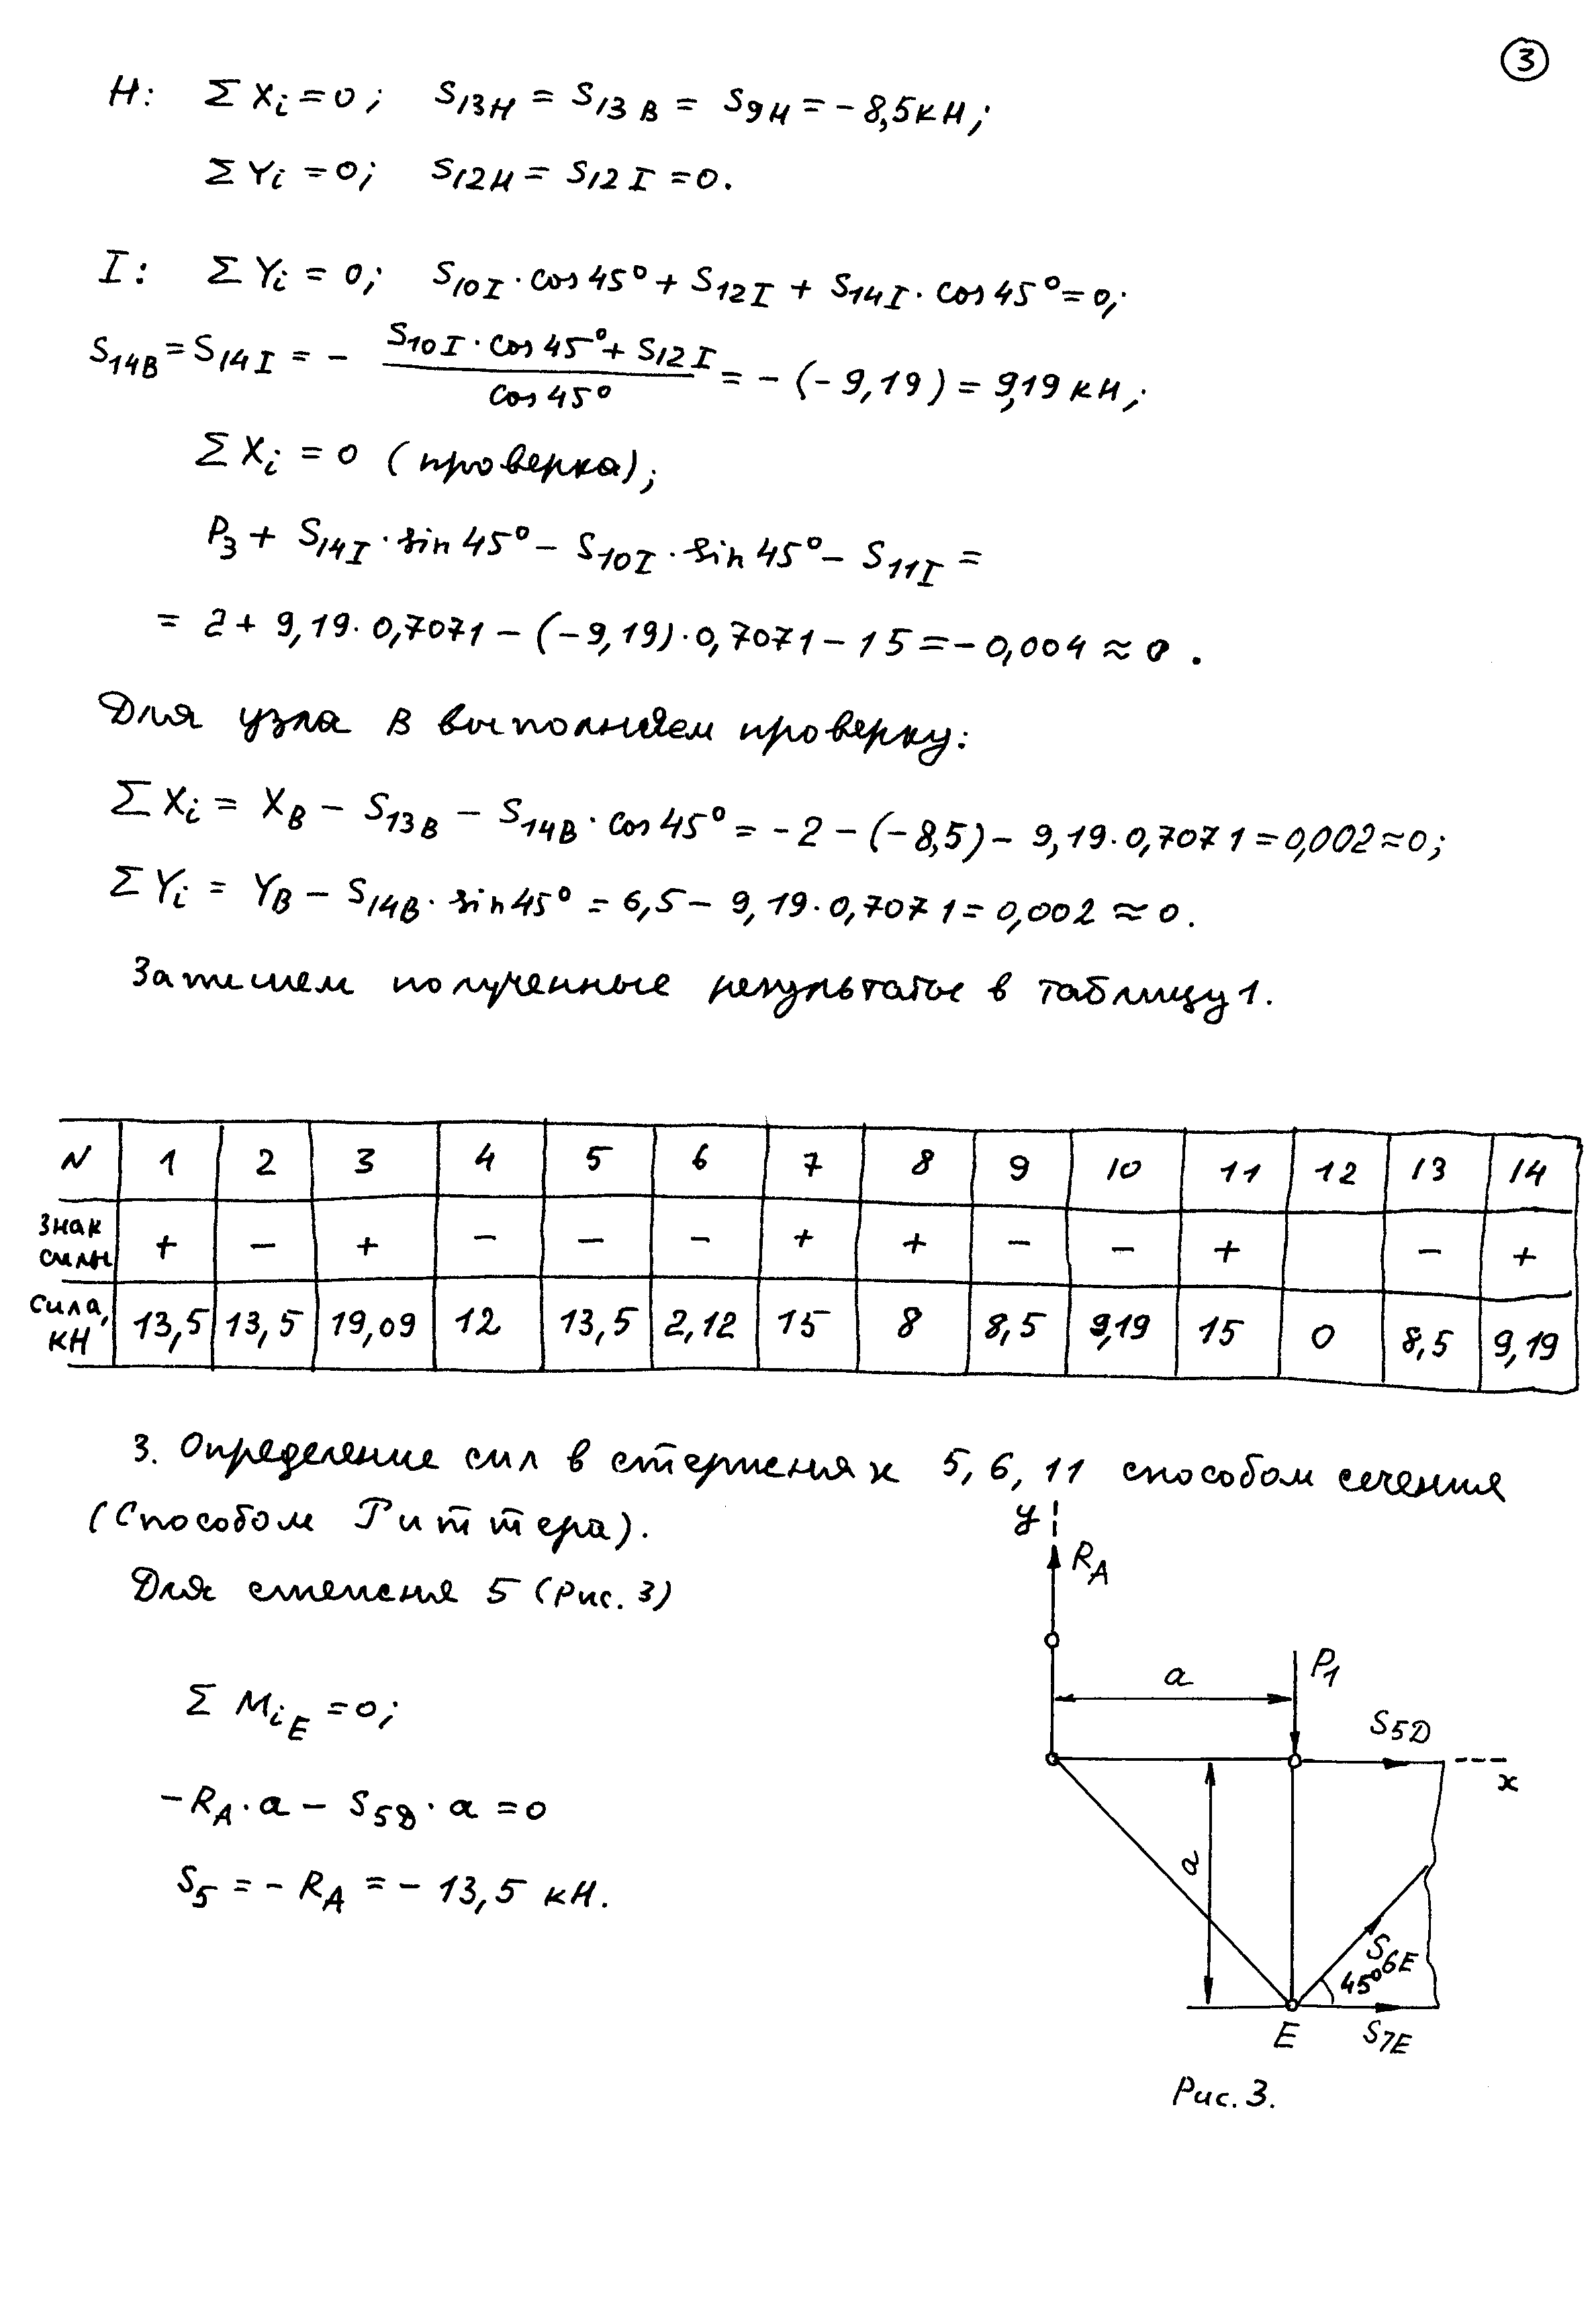 3
H: Σ Xi = 0; S13H = S13B = S9H = -8,5 кН;
Σ Yi = 0; S12H = S12I = 0.
I: Σ Yi = 0; S10I · cos 45° + S12I + S14I · cos 45° = 0;
S14B = S14I = - (S10I · cos 45° + S12I) / cos 45° = - (-9,19) = 9,19 кН;
Σ Xi = 0 (проверка);
P3 + S14I · sin 45° - S10I · sin 45° - S11I =
= 2 + 9,19 · 0,7071 - (-9,19) · 0,7071 - 15 = -0,004 ≈ 0.
Для узла B выполняем проверку:
Σ Xi = XB - S13B - S14B · cos 45° = -2 - (-8,5) - 9,19 · 0,7071 = 0,002 ≈ 0;
Σ Yi = YB - S14B · sin 45° = 6,5 - 9,19 · 0,7071 = 0,002 ≈ 0.
Запишем полученные результаты в таблицу 1.
N 1 2 3 4 5 6 7 8 9 10 11 12 13 14
Знак силы + - + - - - + + - - + - +
Сила, кН 13,5 13,5 19,09 12 13,5 2,12 15 8 8,5 9,19 15 0 8,5 9,19
3. Определение сил в стержнях 5, 6, 11 способом сечения
(Способом Риттера).
Для стержня 5 (Рис. 3)
Σ MiE = 0;
-RA · a - S5D · a = 0
S5 = -RA = -13,5 кН.
y
RA
a
P1
S5D
x
a
S6E
45°
E
S7E
Рис. 3.